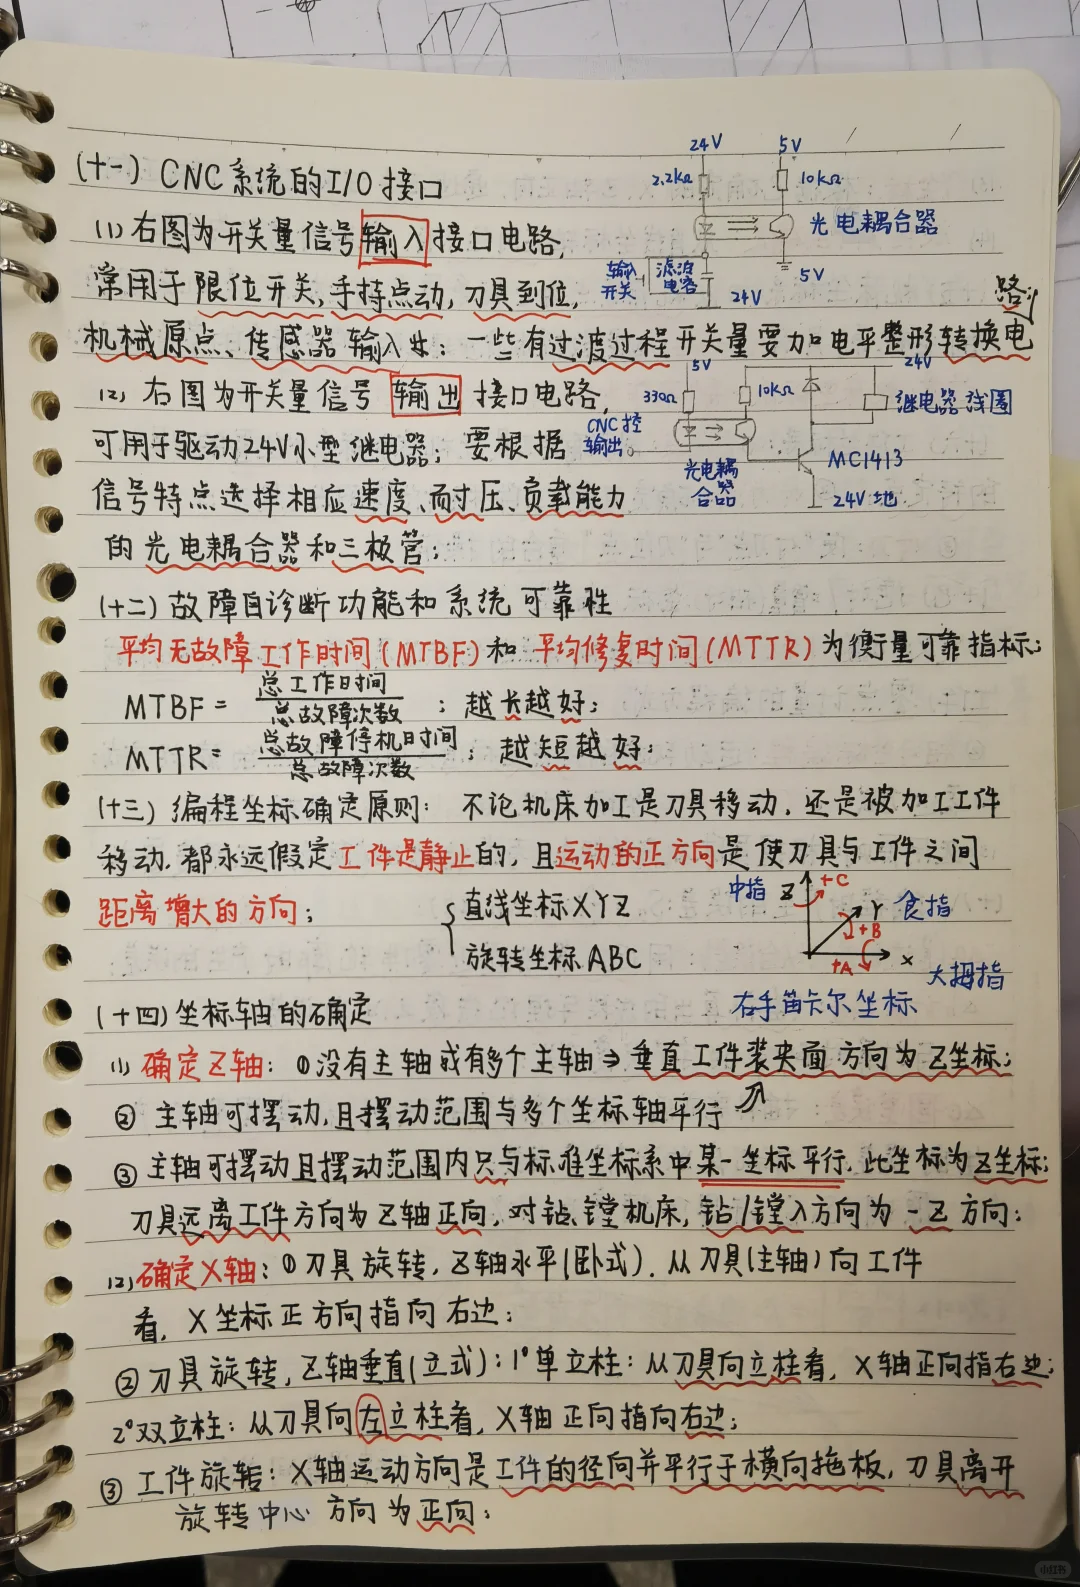 (十一) CNC系统的I/O接口
(1) 右图为开关量信号输入接口电路,
常用于限位开关,手持点动,刀具到位,
机械原点、传感器输入等; 一些有过渡过程开关量要加电平整形转换电路;
24V
5V
2.2kΩ
10kΩ
光电耦合器
输入开关
滤波电容
24V
5V
(2) 右图为开关量信号输出接口电路,
可用于驱动24V小型继电器; 要根据
信号特点选择相应速度、耐压、负载能力
的光电耦合器和三极管;
5V
24V
330Ω
10kΩ
继电器线圈
CNC控输出
光电耦合器
MC1413
24V地
(十二) 故障自诊断功能和系统可靠性
平均无故障工作时间(MTBF)和平均修复时间(MTTR)为衡量可靠指标;
MTBF = 总工作时间/总故障次数; 越长越好;
MTTR = 总故障停机时间/总故障次数; 越短越好;
(十三) 编程坐标确定原则: 不论机床加工是刀具移动,还是被加工工件
移动,都永远假定工件是静止的,且运动的正方向是使刀具与工件之间
距离增大的方向;
{直线坐标XYZ
旋转坐标ABC
中指 Z +C
Y 食指
+B
+A X
大拇指
右手笛卡尔坐标
(十四) 坐标轴的确定
(1) 确定Z轴: ①没有主轴或有多个主轴⇒垂直工件装夹面方向为Z坐标;
② 主轴可摆动,且摆动范围与多个坐标轴平行 ⇗
③ 主轴可摆动且摆动范围内只与标准坐标系中某一坐标平行,此坐标为Z坐标;
刀具远离工件方向为Z轴正向,对钻、镗机床,钻/镗入方向为-Z方向;
(2) 确定X轴: ①刀具旋转,Z轴水平(卧式),从刀具(主轴)向工件
看,X坐标正方向指向右边;
② 刀具旋转,Z轴垂直(立式): 1°单立柱: 从刀具向立柱看,X轴正向指右边;
2°双立柱: 从刀具向左立柱看,X轴正向指向右边;
③ 工件旋转: X轴运动方向是工件的径向并平行于横向拖板,刀具离开
旋转中心方向为正向;
小红书